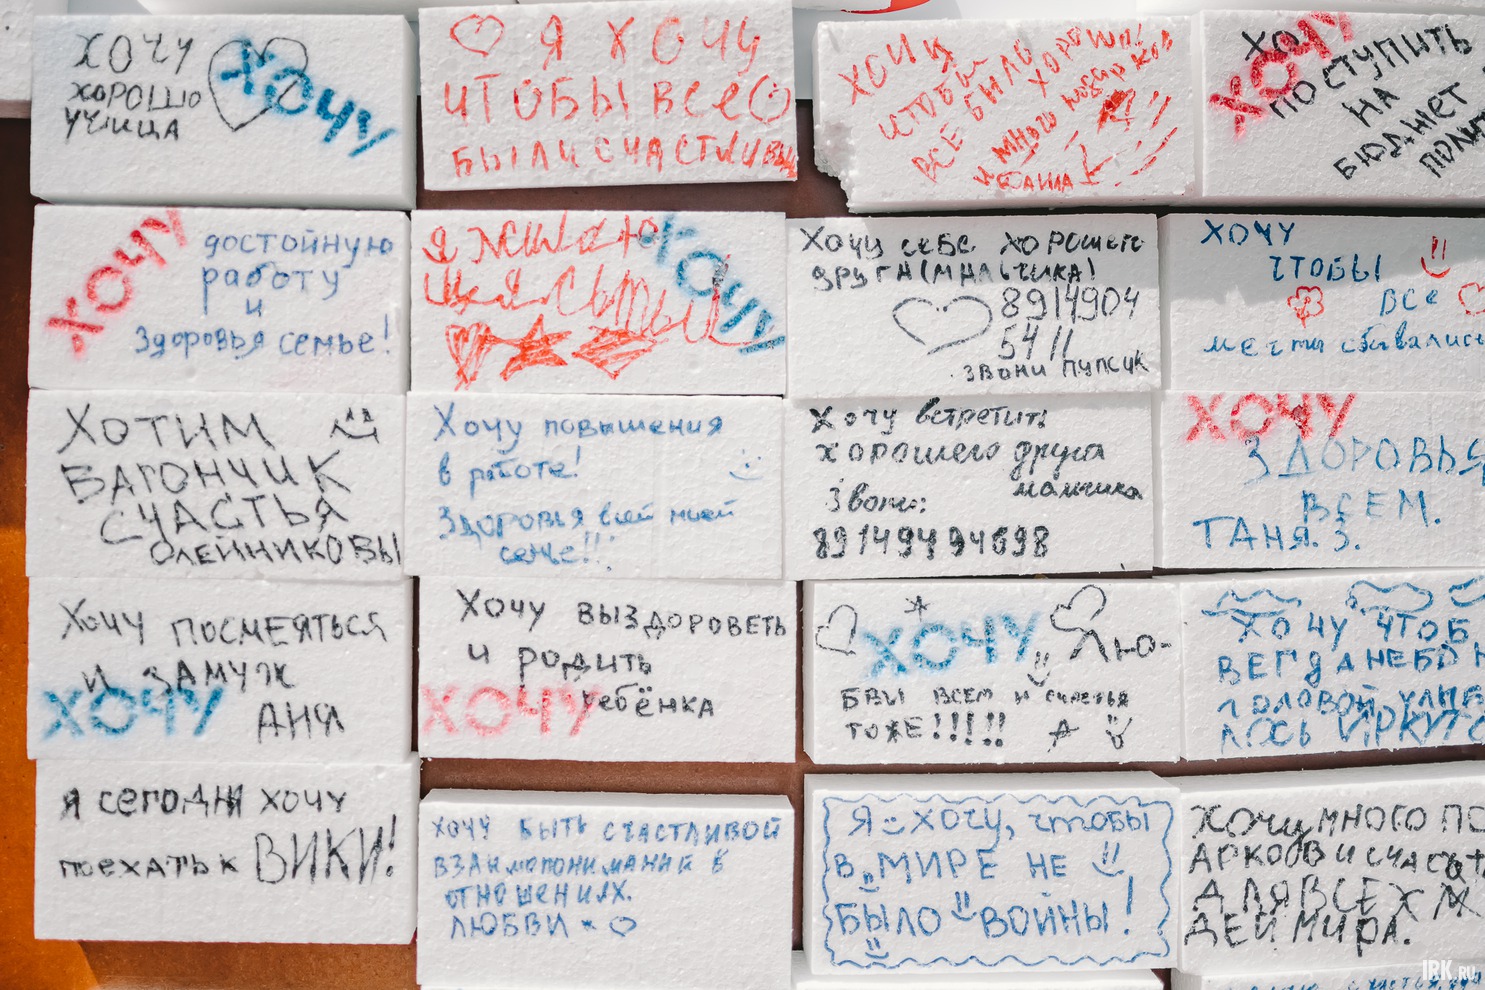 ХОЧУ
ХОРОШО
УЧИЦА
ХОЧУ
Я ХОЧУ
ЧТОБЫ ВСЕ
БЫЛИ СЧАСТЛИВЫ
ЧТОБЫ
ВСЕ БЫЛО
ХОРОШО!
И МНОГО ПОДАРКОВ
ХОЧУ
ПОСТУПИТЬ
НА
БЮДЖЕТ
ПОЛИ
ХОЧУ
достойную
работу
и
Здоровья семье!
Я
ХОЧУ
Хочу себе хорошего
друга (мальчика!
8914904
54 11
звони пупсик
ХОЧУ
ЧТОБЫ
ВСЕ
мечты сбывались
ХОТИМ
ВАГОНЧИК
СЧАСТЬЯ
ОЛЕЙНИКОВЫ
Хочу повышения
в работе!
Здоровья всей моей
семье!!
Хочу встретить
хорошего друга
мальчика
Звони:
89149494698
ХОЧУ
ЗДОРОВЬЯ
ВСЕМ.
ТАНЯ. З.
Хочу ПОСМЕЯТЬСЯ
И ЗАМУЖ
ХОЧУ
АНЯ
Хочу ВЫЗДОРОВЕТЬ
и РОДИТЬ
ХОЧУ
ребёнка
ХОЧУ
ЛЮ-
БВИ ВСЕМ И счастья
ТОЖЕ!!!!!
ХОЧУ ЧТОБ
ВСЕГДА НЕБО Н
ГОЛОВОЙ УЛЫБ
ЛОСЬ ИРКУТС
Я СЕГОДНЯ ХОЧУ
ПОЕХАТЬ К ВИКИ!
ХОЧУ БЫТЬ СЧАСТЛИВОЙ
ВЗАИМОПОНИМАНИЙ В
ОТНОШЕНИЯХ.
ЛЮБВИ
Я ХОЧУ, чтобы
В МИРЕ НЕ
БЫЛО ВОЙНЫ!
ХОЧУ МНОГО ПО
ДАРКОВ И СЧАСТ
ДЛЯ ВСЕХ
ДЕЙ МИРА.
IRK.RU